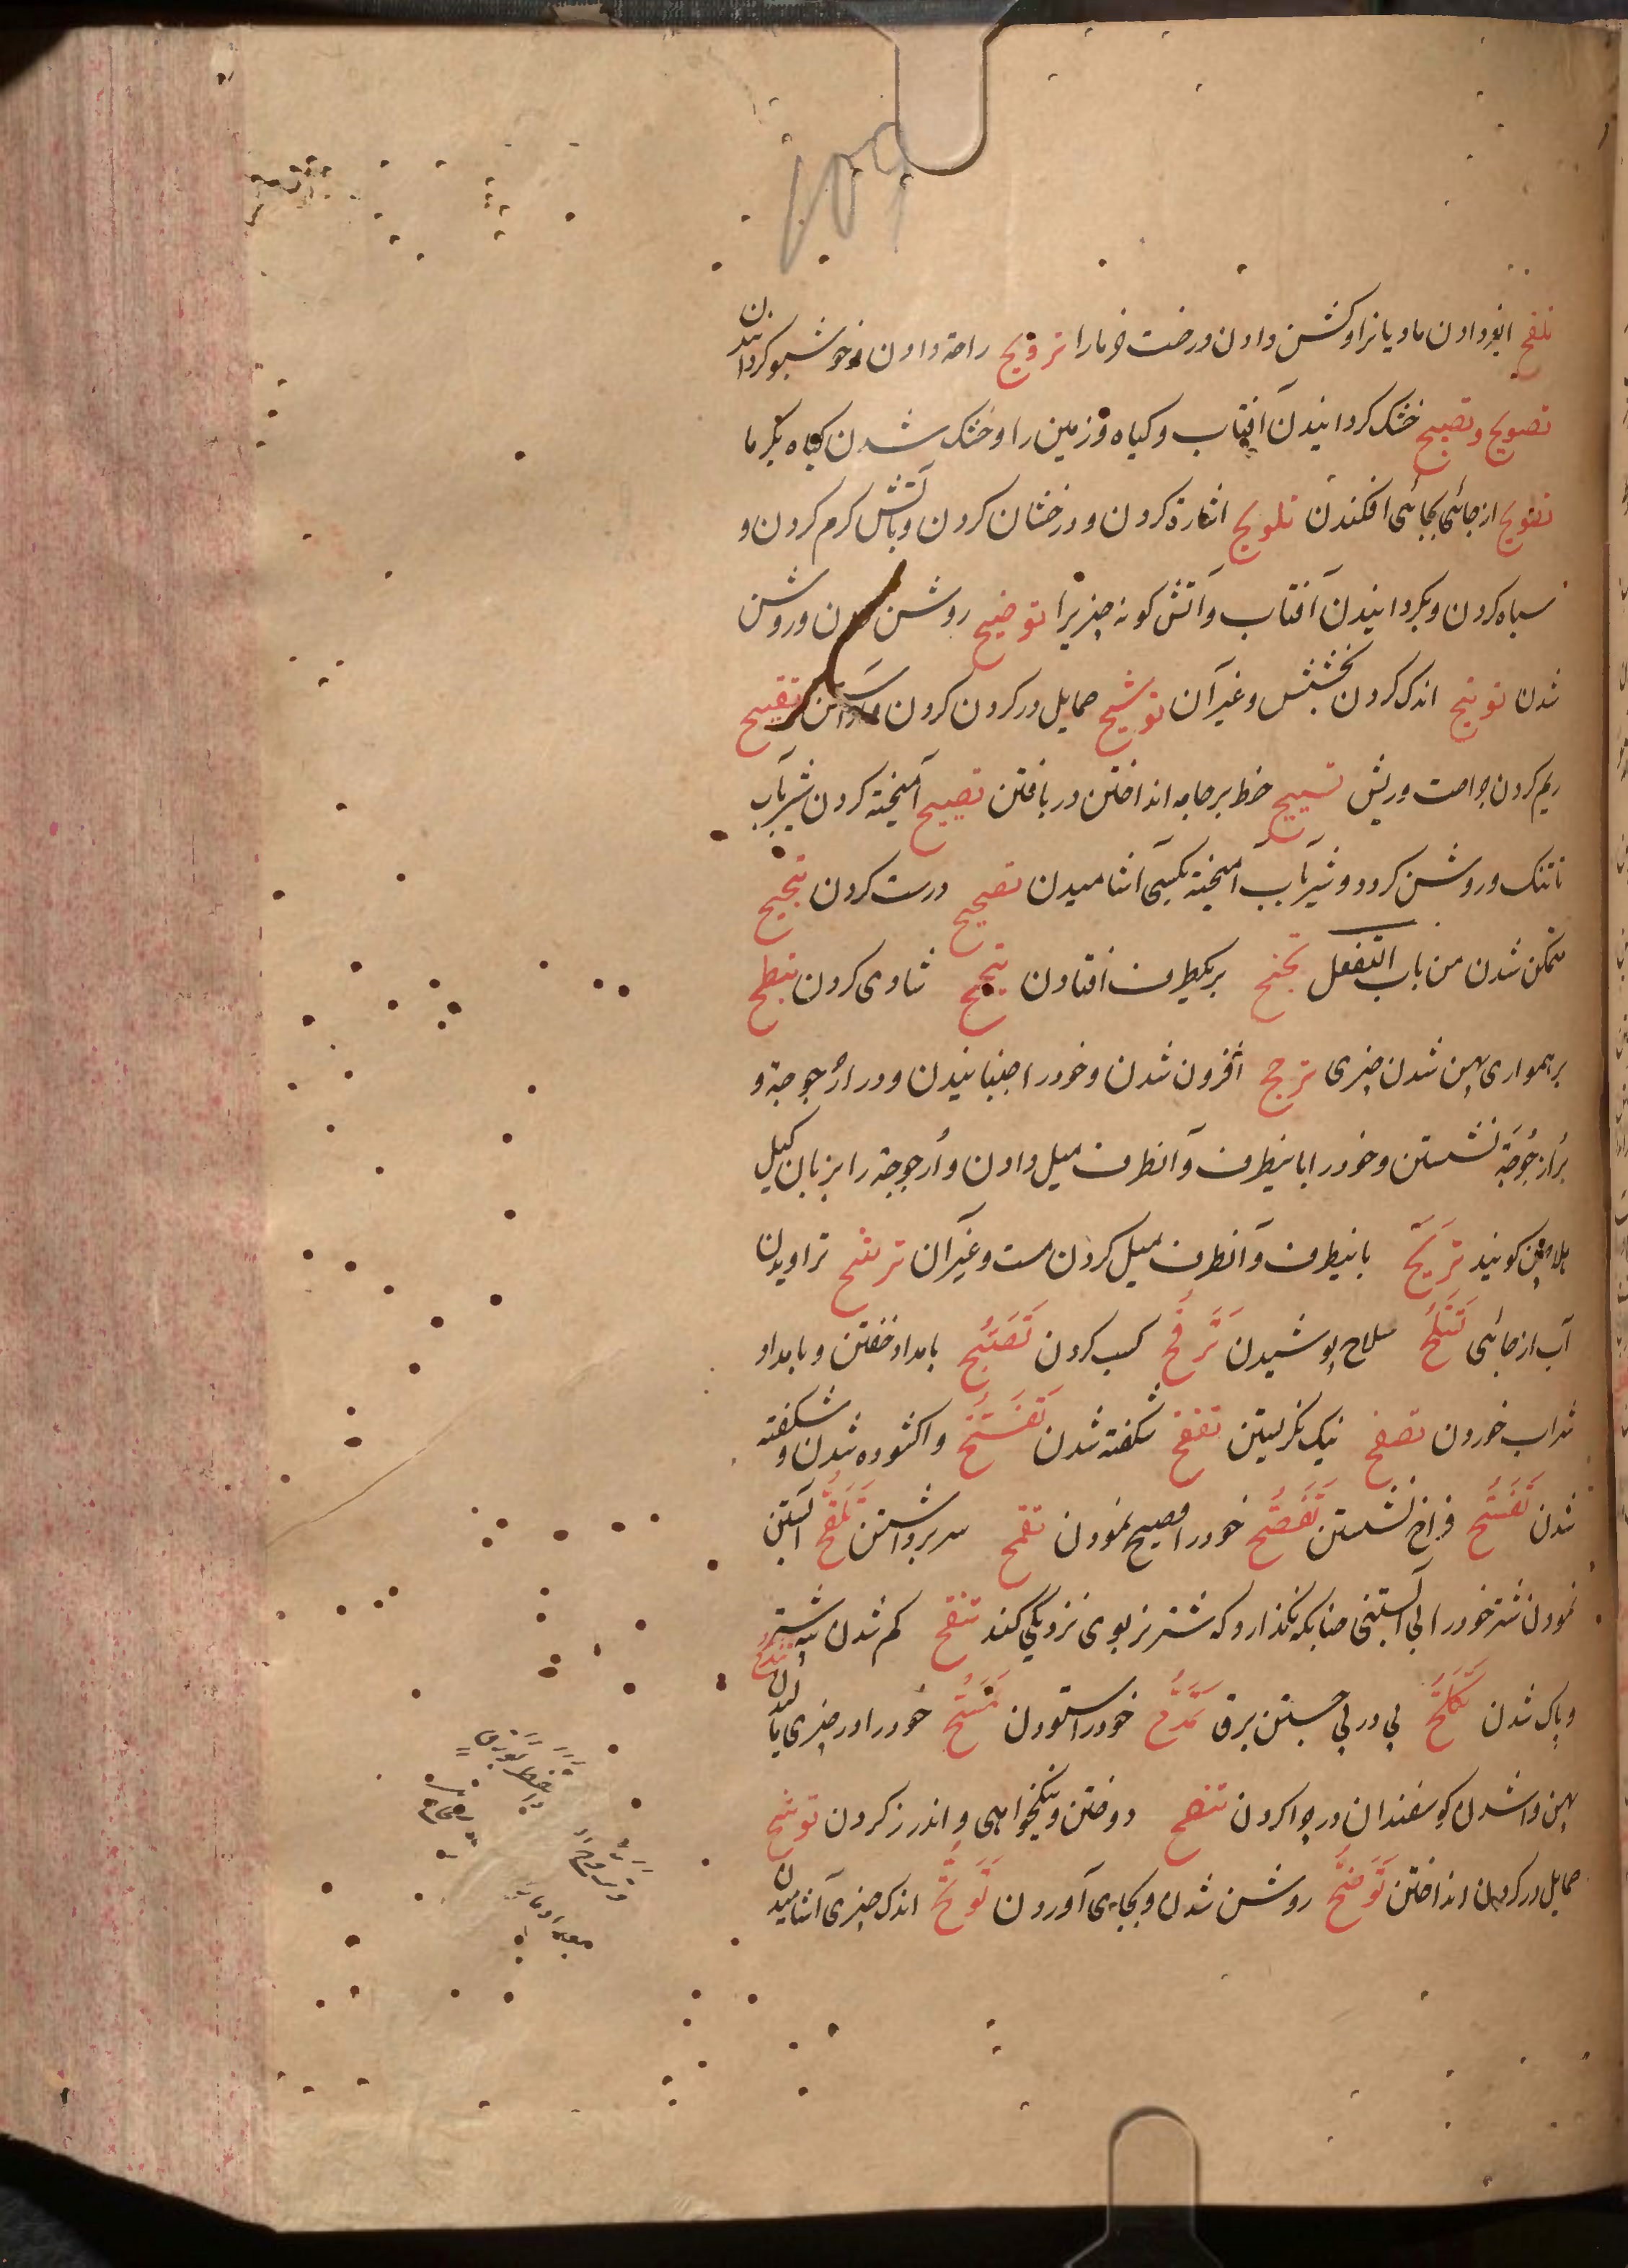 تلقیح ابغر دادن مادیانرا و کشن دادن درخت خرمارا ترویح راحة دادن و خوشبو کردانیدن
تصویح و تصییح خشک کردانیدن آفتاب و کیاه و زمین را و خشک شدن کیاه بکرما
تطویح از جائی بجائی افکندن تلویح اشارة کردن و درخشان کردن و بآتش کرم کردن و
سیاه کردن و بکردانیدن آفتاب و آتش کونه چیزیرا توضیح روشن کردن و روشن
شدن توتیح اندک کردن بخشش و غیر آن توشیح حمایل در کردن کردن و آراستن تقییح
ریم کردن جراحت و ریش تسییح خط بر جامه انداختن در بافتن تضییح آمیخته کردن شیر بآب
تا تنک و روشن کردد و شیر بآب آمیخته بکسی آشامیدن تصحیح درست کردن تبحیح
متمکن شدن من باب التفعل تجنح بریکطرف افتادن تبجح شادی کردن تبطح
بر همواری پهن شدن چیزی ترجح افزون شدن و خودرا جنبانیدن و در ارجوجة و
بر ارجوجة نشستن و خودرا باینطرف و آنطرف میل دادن و ارجوجة را بزبان کیل
هلاچین کویند تریح باینطرف و آنطرف میل کردن مست و غیر آن ترشح تراویدن
آب از جائی تسلح سلاح پوشیدن ترقح کسب کردن تصبح بامداد خفتن و بامداد
شراب خوردن تصفح نیک نکریستن تفقح شکفته شدن تفتح واکشوده شدن و شکفته
شدن تفسح فراخ نشستن تفصح خودرا فصیح نمودن تقمح سر برداشتن تلقح آبستن
نمودن شتر خودرا بی آبستنی چنانکه نکذارد که شتر نر بوی نزدیکی کند تنقح کم شدن پیه شتر
و پاک شدن تکلح پی در پی جستن برق تمدح خودرا ستودن تمسح خودرا در چیزی مالیدن تندح
پهن واشدن کوسفندان در چرا کردن تنصح دوختن و نیکخواهی و اندرز کردن توشح
حمایل در کردن انداختن توضح روشن شدن و بجای آوردن توتح اندک چیزی آشامیدن